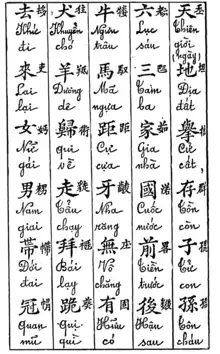 天
Thiên
giời
(ngày)
地 坦
Địa
đất,
舉
Cử
cất,
存 群
Tồn
còn
子
Tử
con
孫
Tôn
cháu
六
Lục
sáu
三
Tam
ba
家 茹
Gia
nhà
國 渃
Cuốc
nước
前
Tiền
trước
後
Hậu
sau
牛
Ngưu
trâu
馬 馭
Mã
ngựa
距 距
Cự
cựa
牙
Nha
răng
無 庒
Vô
chăng
有 固
Hữu
có
犬
Khuyển
chó
羊 羝
Dương
dê
歸 術
Qui
về
走
Tẩu
chạy
拜
Bái
lạy
跪
Quị
quì
去
Khứ
đi
來 吏
Lai
lại
女
Nữ
gái
男
Nam
giai
帶
Đới
đai
冠
Quan
mũ